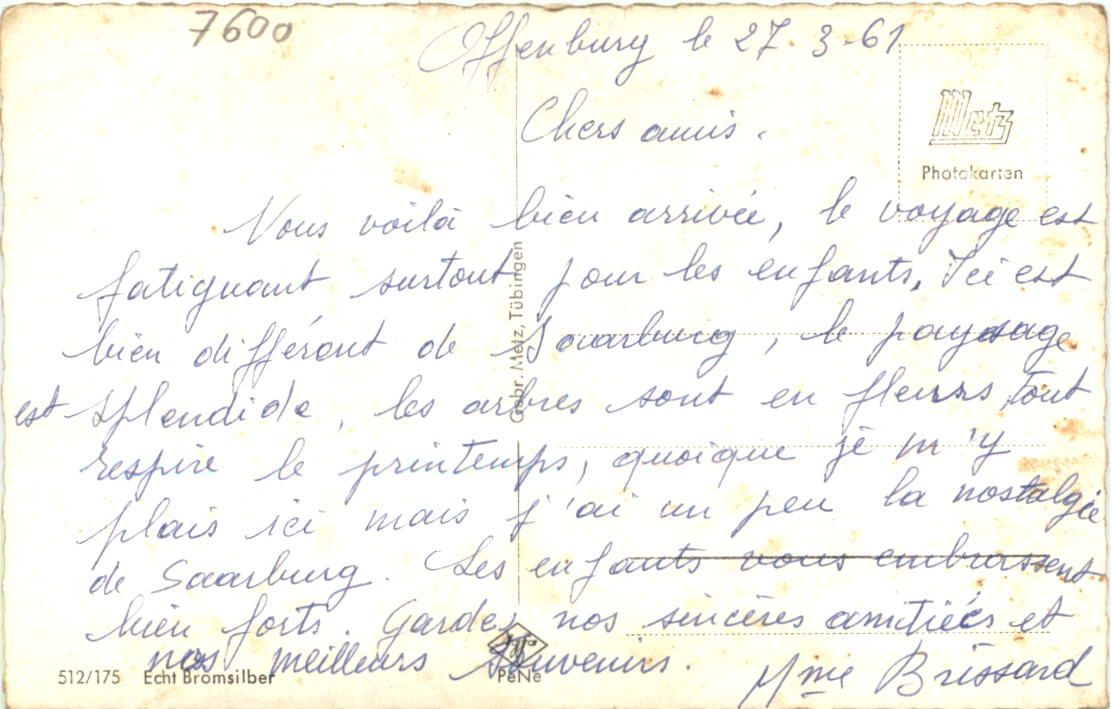 7600
Offenburg le 27.3-61
Chers amis.
Metz
Photokarten
Nous voilà bien arrivée, le voyage est
fatiguant surtout pour les enfants. Ici est
bien différent de Saarburg, le paysage
est splendide, les arbres sont en fleurs, tout
respire le printemps, quoique je m'y
plais ici mais j'ai un peu la nostalgie
de Saarburg. Les enfants vous embrassent
bien forts. Gardez nos sincères amitiés et
nos meilleurs souvenirs.
Mme Brissard
Gebr. Metz, Tübingen
512/175 Echt Bromsilber
PeNe